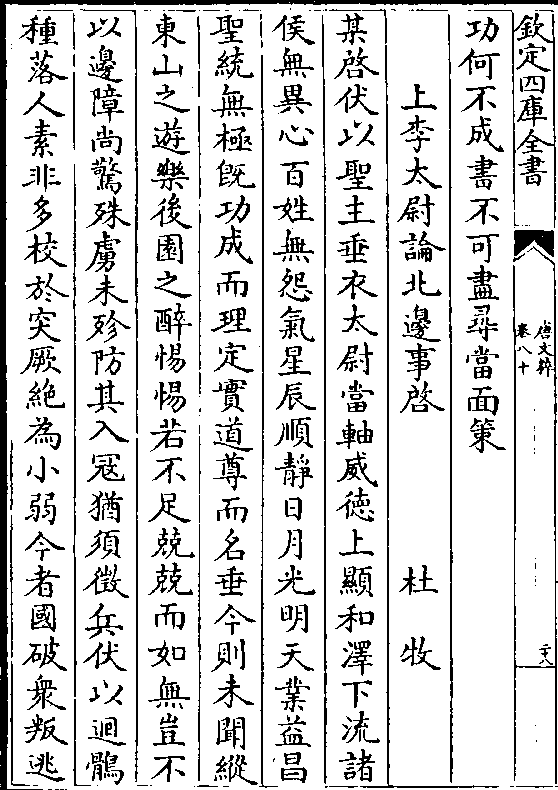 欽定四庫全書
唐文粹
卷八十
二十八
功何不成書不可盡尋當面策
上李太尉論北邊事啓　杜牧
某啓伏以聖主垂衣太尉當軸威德上顯和澤下流諸
侯無異心百姓無怨氣星辰順靜日月光明天業益昌
聖統無極旣功成而理定實道尊而名垂今則未聞縱
東山之遊樂後園之醉惕惕若不足兢兢而如無豈不
以邊障尚驚殊虜未殄防其入冦猶須徵兵伏以迴鶻
種落人素非多校於突厥絶為小弱今者國破衆叛逃